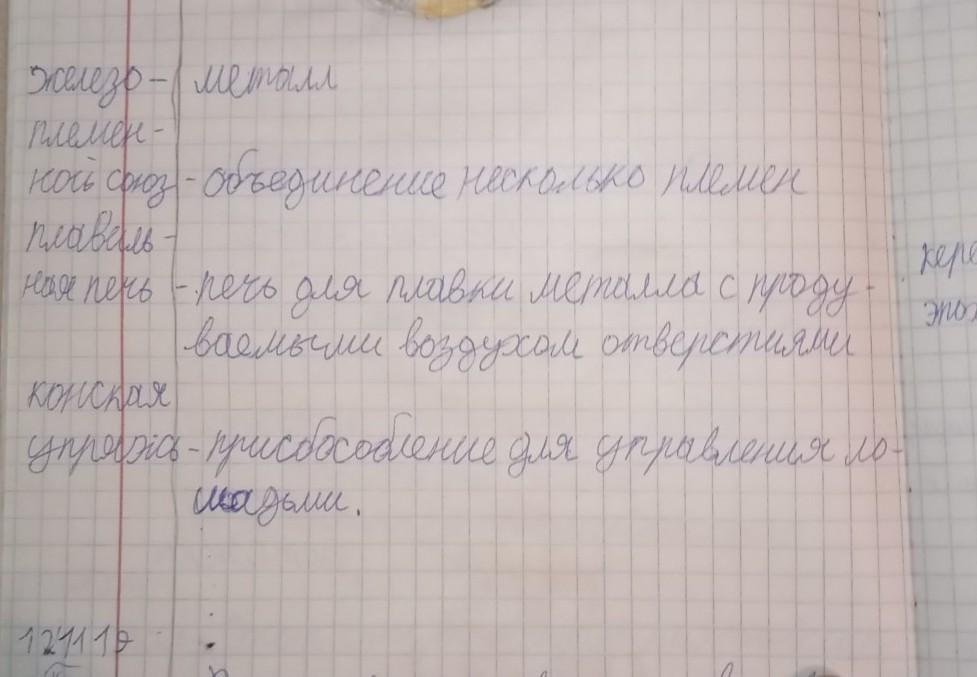 железо - металл
племен-
ной союз - объединение несколько племен
плавиль-
ная печь - печь для плавки металла с проду-
ваемыми воздухом отверстиями
конская
упряжь - приспособление для управления ло-
шадьми.
кере
эпох